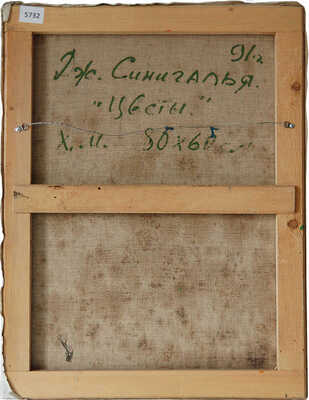 5732
91г.
Дж. Синигалья.
"Цветы."
Х.М. 80х60см